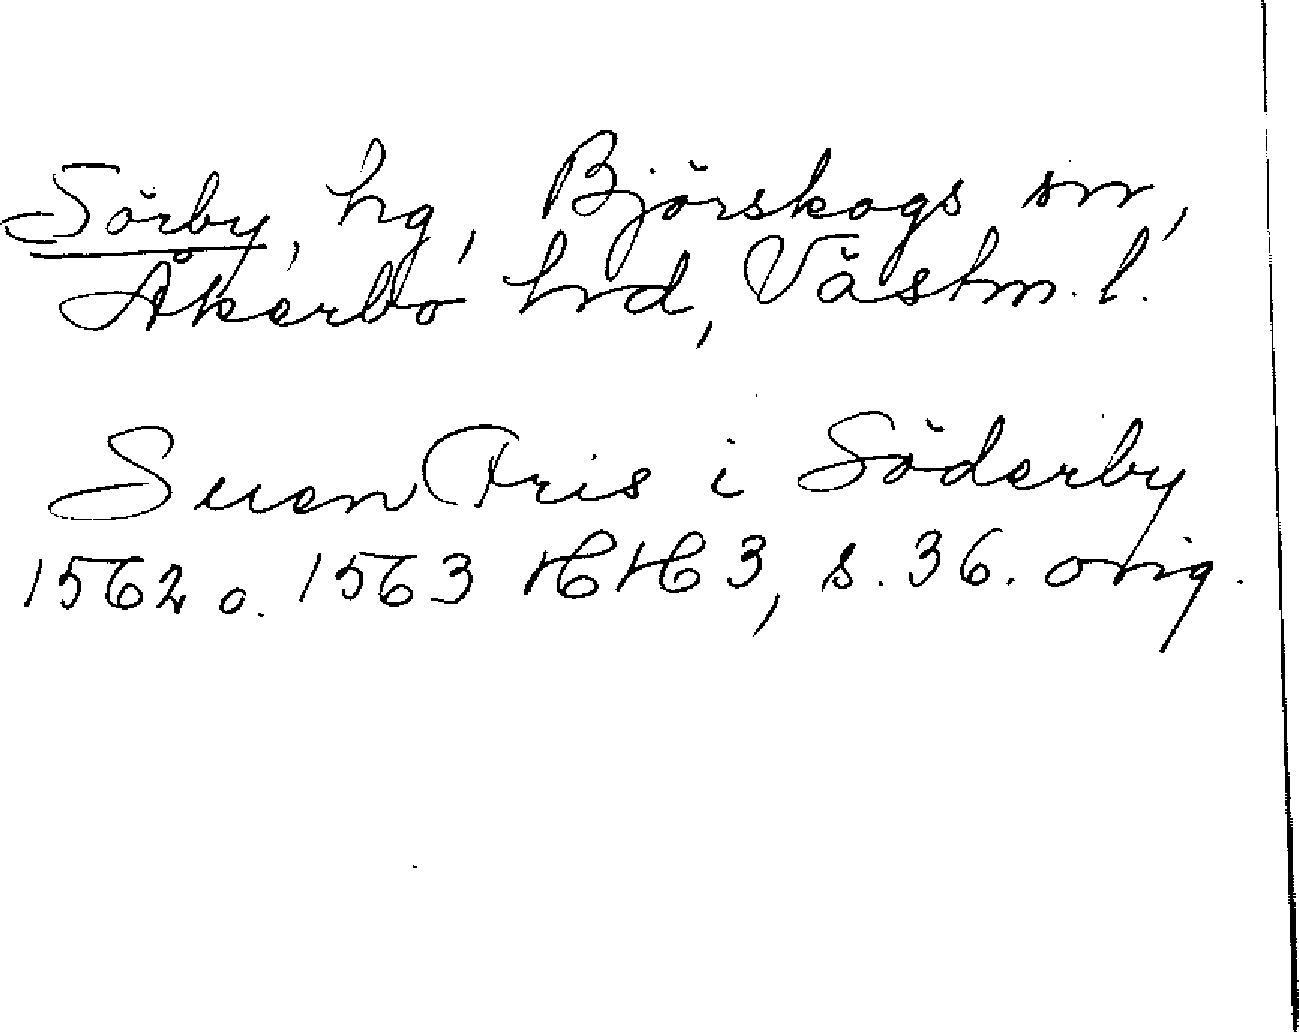 Sörby, hg, Björskogs sn,
Åkerbo hrd, Västm. l.
Suen Pris i Söderby
1562 o. 1563 HH 3, s. 36. orig.